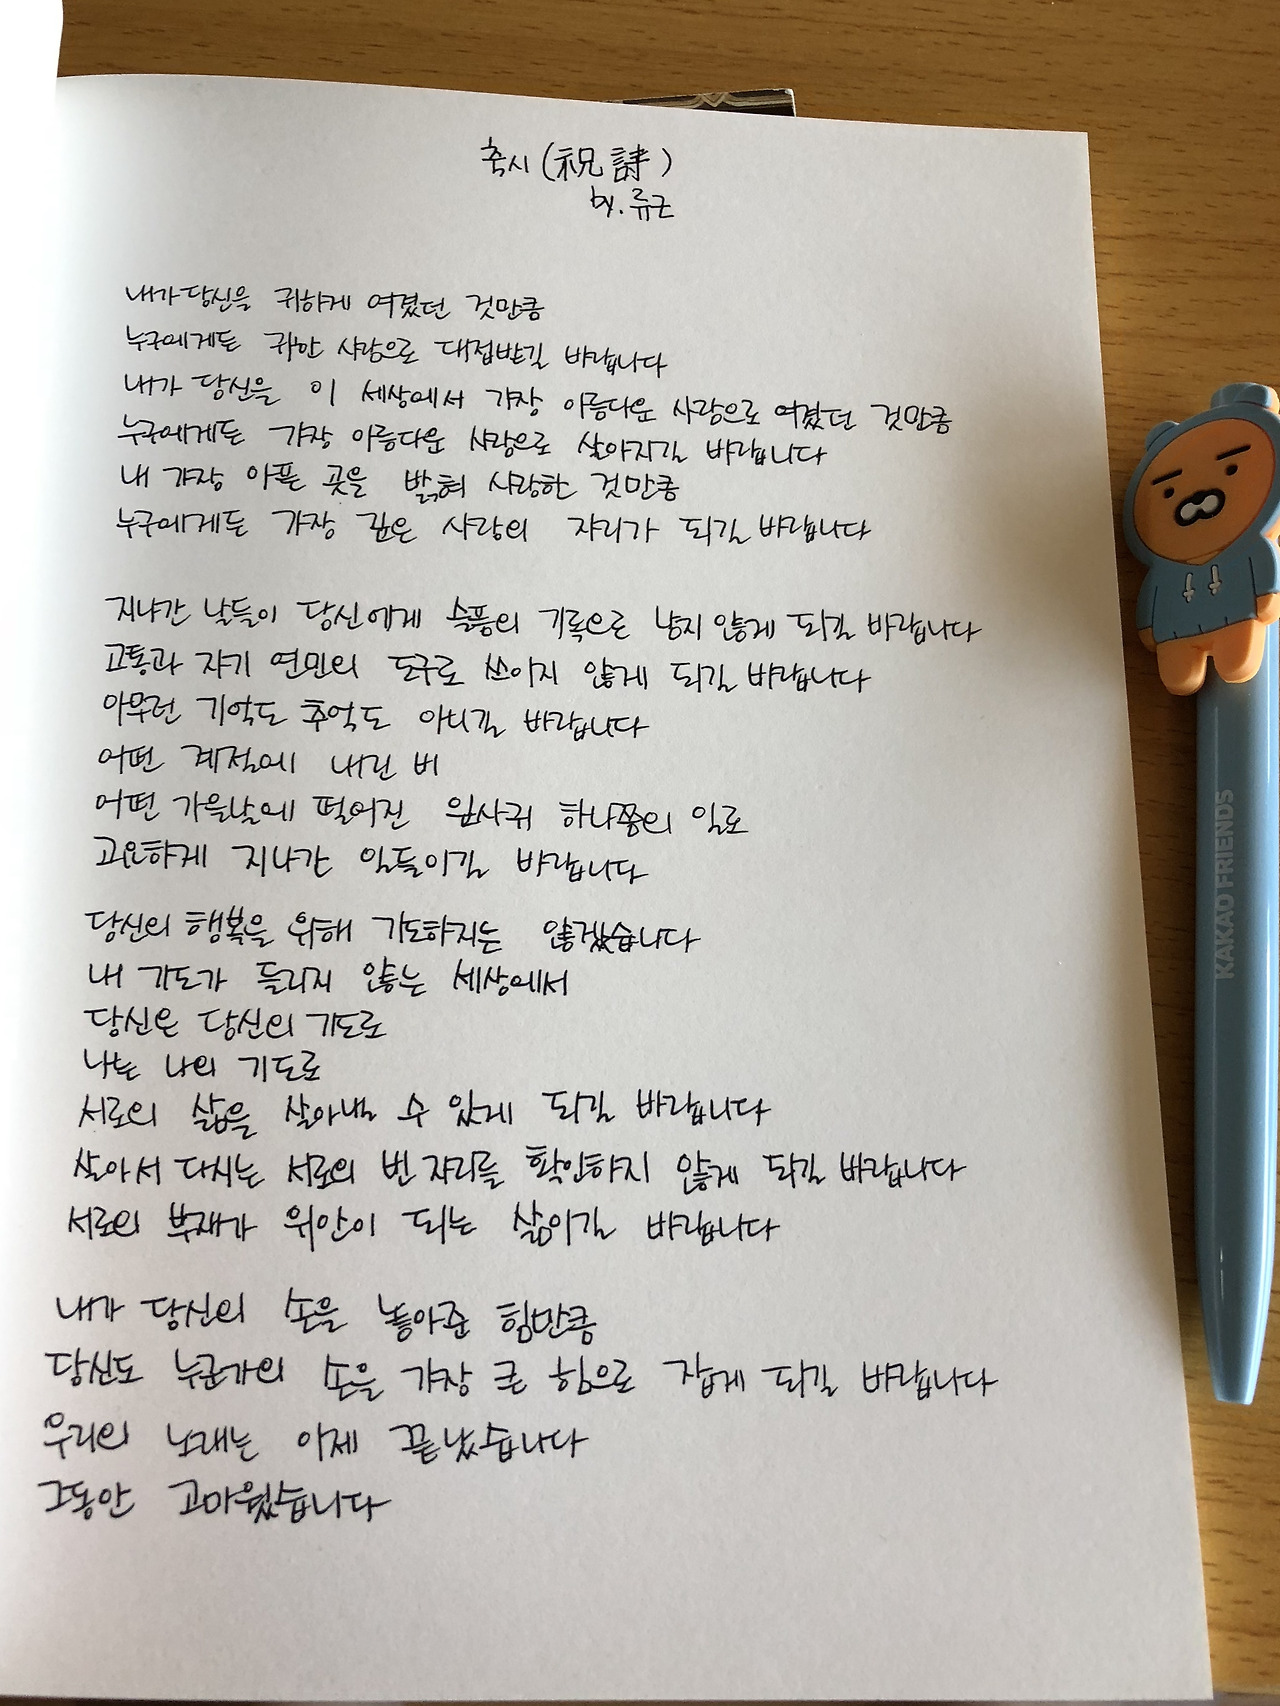 축시(祝詩)
by. 류근
내가 당신을 귀하게 여겼던 것만큼
누구에게든 귀한 사람으로 대접받길 바랍니다
내가 당신을 이 세상에서 가장 아름다운 사람으로 여겼던 것만큼
누구에게든 가장 아름다운 사람으로 살아지길 바랍니다
내 가장 아픈 곳을 밝혀 사랑한 것만큼
누구에게든 가장 깊은 사랑의 자리가 되길 바랍니다
지나간 날들이 당신에게 슬픔의 기록으로 남지 않게 되길 바랍니다
고통과 자기 연민의 도구로 쓰이지 않게 되길 바랍니다
아무런 기억도 추억도 아니길 바랍니다
어떤 계절에 내린 비
어떤 가을날에 떨어진 잎사귀 하나쯤의 일로
고요하게 지나간 일들이길 바랍니다
당신의 행복을 위해 기도하지는 않겠습니다
내 기도가 들리지 않는 세상에서
당신은 당신의 기도로
나는 나의 기도로
서로의 삶을 살아낼 수 있게 되길 바랍니다
살아서 다시는 서로의 빈 자리를 확인하지 않게 되길 바랍니다
서로의 부재가 위안이 되는 삶이길 바랍니다
내가 당신의 손을 놓아준 힘만큼
당신도 누군가의 손을 가장 큰 힘으로 잡게 되길 바랍니다
우리의 노래는 이제 끝났습니다
그동안 고마웠습니다
KAKAO FRIENDS